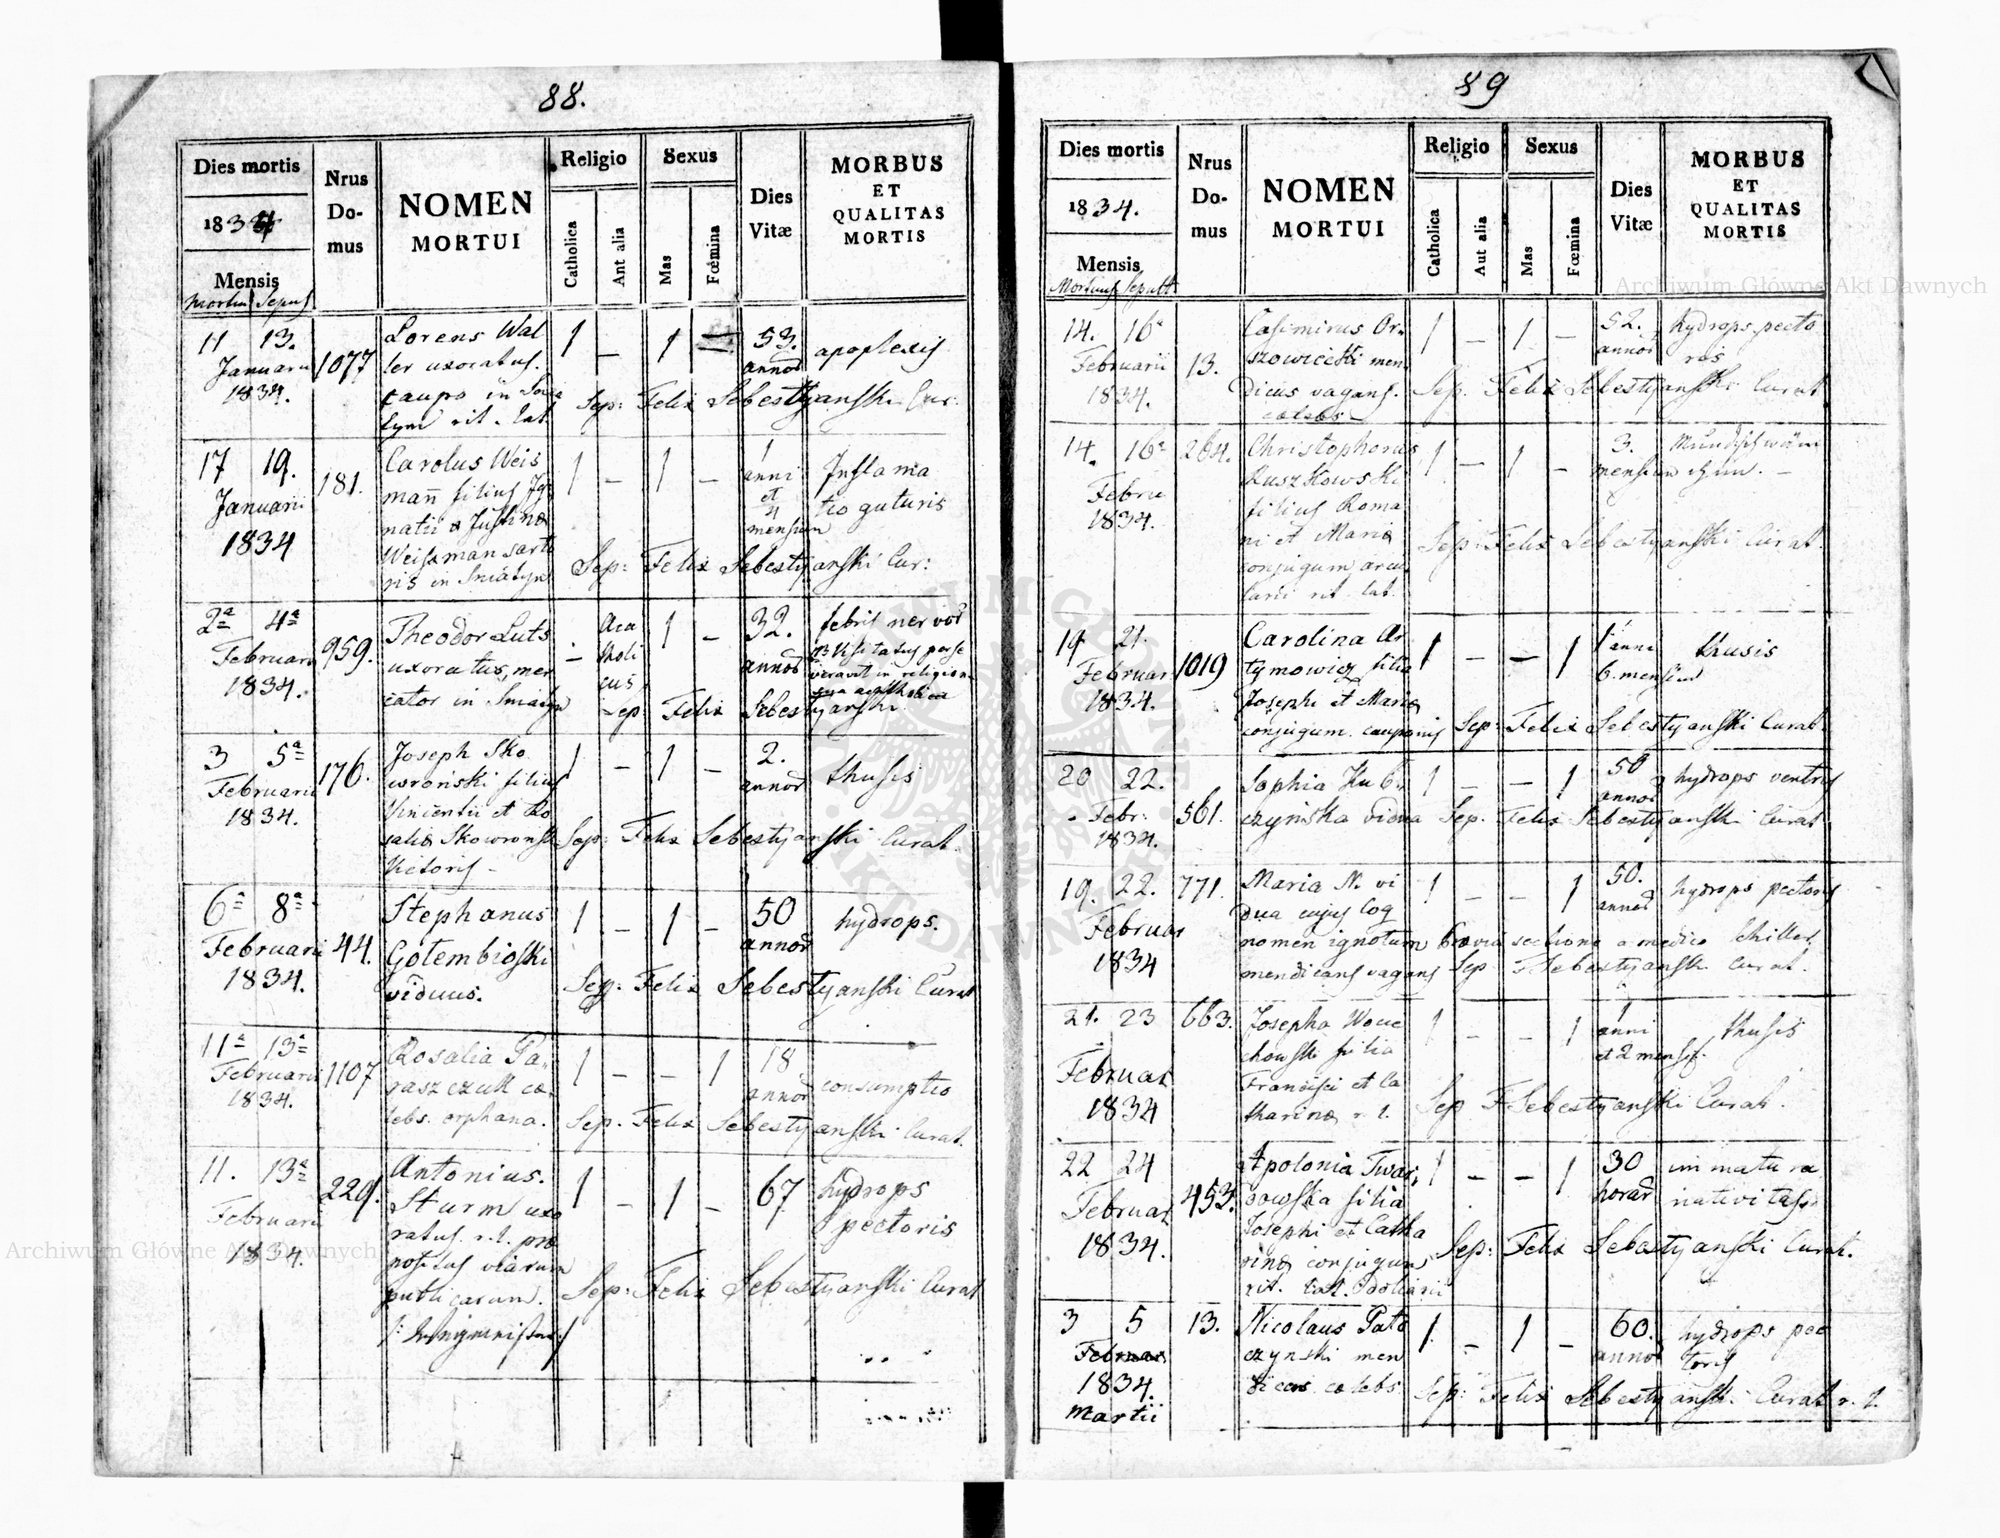 88.
Dies mortis
1834
Mensis
Mortui Sepul
Nrus
Do-
mus
NOMEN
MORTUI
Religio
Catholica
Ant alia
Sexus
Mas
Fœmina
Dies
Vitæ
MORBUS
ET
QUALITAS
MORTIS
11 13.
Januarii
1834.
1077
Lorens Wal
ler uxoratus.
caupo in
rit. lat.
1 – 1 –
53.
annor
apoplexis
Sep: Felix Sebestyanski Cur:
17 19.
Januarii
1834
181.
Carolus Weis
mañ filius Ig
natii & Justina
Weissman sarto
ris in Sniatyn
1 – 1 –
1
anni
et
4
mensium
Inflama
tio guturis
Sep: Felix Sebestyanski Cur:
2a 4a
Februari
1834.
959.
Theodor Luts
uxoratus, mer
cator in Sniatyn
– Aca
tholi
cus
1 –
32.
annor
febris nervos
NB Visitatus perse
veravit in religione
sua acatholica
Sep: Felix Sebestyanski
3 5a
Februarii
1834.
176.
Joseph Sko
wroński filius
Vincentii et Ro
salia Skowronsk
Victoris –
1 – 1 –
2.
annor
thusis
Sep: Felix Sebestyanski Curat.
6a 8a
Februarii
1834.
44.
Stephanus
Gotembioski
viduus.
1 – 1 –
50
annor
hydrops.
Sep: Felix Sebestyanski Curat
11a 13a
Februarii
1834.
1107
Rosalia Pa
raszczuk cæ
lebs. orphana.
1 – – 1
18
annor
consumptio
Sep. Felix Sebestyanski Curat.
11. 13a
Februarii
1834.
229.
Antonius.
Sturm uxo
ratus. r. l. præ
positus viarum
publicarum.
1 – 1 –
67
hydrops
pectoris
Sep: Felix Sebestyanski Curat
89
Dies mortis
1834.
Mensis
Mortuus Sepult
Nrus
Do-
mus
NOMEN
MORTUI
Religio
Catholica
Aut alia
Sexus
Mas
Fœmina
Dies
Vitæ
MORBUS
ET
QUALITAS
MORTIS
14. 16a
Februarii
1834.
13.
Casimirus Or
szowicecki men
dicus vagans.
cælebs –
1 – 1 –
52.
annor
hydrops pecto
ris
Sep. Felix Sebestyanski Curat
14. 16a
Febru
1834.
264.
Christophorus
Ruszkowski
filius Roma
ni et Maria
conjugum arcu
larii rit. lat.
1 – 1 –
3.
mensium
Sep: Felix Sebestyanski Curat.
19 21.
Februar
1834.
1019
Carolina Ar
tymowicz filia
Josephi et Maria
conjugum. cauponis
1 – – 1
1 anni
6. mensium
thusis
Sep: Felix Sebestyanski Curat.
20 22.
Febr:
1834.
561.
Sophia Kubi
czyńska vidua
1 – – 1
50
annor
hydrops ventris
Sep. Felix Sebestyanski Curat
19. 22.
Februar
1834
771.
Maria N. vi
dua cujus cog
nomen ignotum
mendicans vagans
1 – – 1
50.
annor
hydrops pectoris
prævia sectione a medico Schiller
Sep F Sebestyanski Curat.
21. 23
Februar
1834
663.
Josepha Woic
chowski filia
Francisci et Ca
tharina r. l.
1 – – 1
1
anni
et 2 mens.
thusis
Sep F Sebestyanski Curat.
22 24
Februar
1834.
453.
Apolonia Twar
dowska filia
Josephi et Catha
rina conjugum
rit. Lat. Doliarii
1 – – 1
30
horar
immatura
nativitas
Sep: Felix Sebestyanski Curat.
3 5
Februar
1834.
Martii
13.
Nicolaus Pato
czynski men
dicus cælebs
1 – 1 –
60.
annor
hydrops pec
toris
Sep: Felix Sebestyanski Curat r. l.
Archiwum Główne Akt Dawnych
Archiwum Główne Akt Dawnych